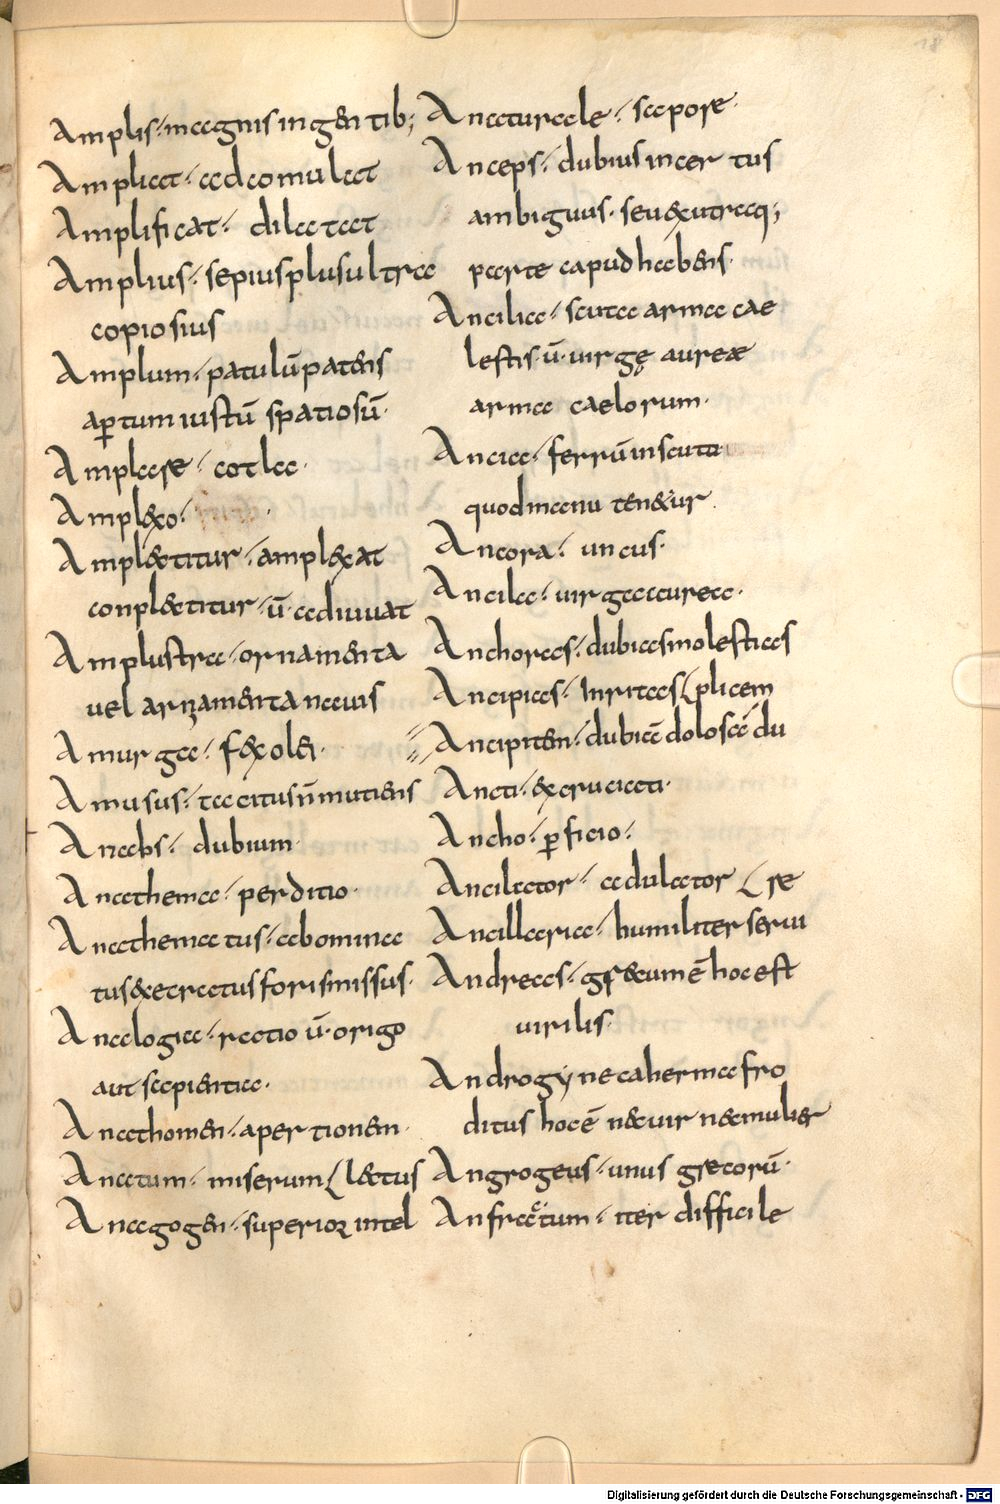 18
Amplis· magnis ingentib;
Ampliat· adcomulat
Amplificat· dilatat
Amplius· sepius plus ultra
copiosius
Amplum· patulū patens
aꝑtum iustū spatiosū·
Amplare· cotlae·
Amplexo·
Amplectitur· amplexat
conplectitur· ū· adiuuat
Amplustra· ornamenta
vel armamenta nauis
Amurga· fex olei·
Amusus· tacitus ū mutiens
Anabs· dubium·
Anathema· perditio·
Anathematus· abomina
tus execratus foris missus·
Analogia· ratio ū· origo
aut sapientia·
Anathomen· apertionem·
Anatum· miserum
Anagogen· superior intel lectus
Anaturale· sapore·
Anceps· dubius incertus
ambiguus· seu ex utraq;
parte capud habens·
Ancilia· scuta arma cae
lestis· ū· uirgę aureae
arma caelorum·
Ancia· ferrū in scuto
quod manu tenetur·
Ancora· uncus·
Ancila· uirga aurea·
Anchoras· dubias molestias
Ancipias· Inritas plicem
Ancipitem· dubiā dolosā du
Ancti· excruciati·
Ancho· ꝑficio·
Ancilator· adulator re
Ancillaria· humiliter serui
Andreas· grecum ē hoc est
uirilis·
Androgyneca hermafro
ditus hoc ē nec uir nec mulier
Angrogeus· unus grecorū·
Anfractum· iter difficile
Digitalisierung gefördert durch die Deutsche Forschungsgemeinschaft - DFG